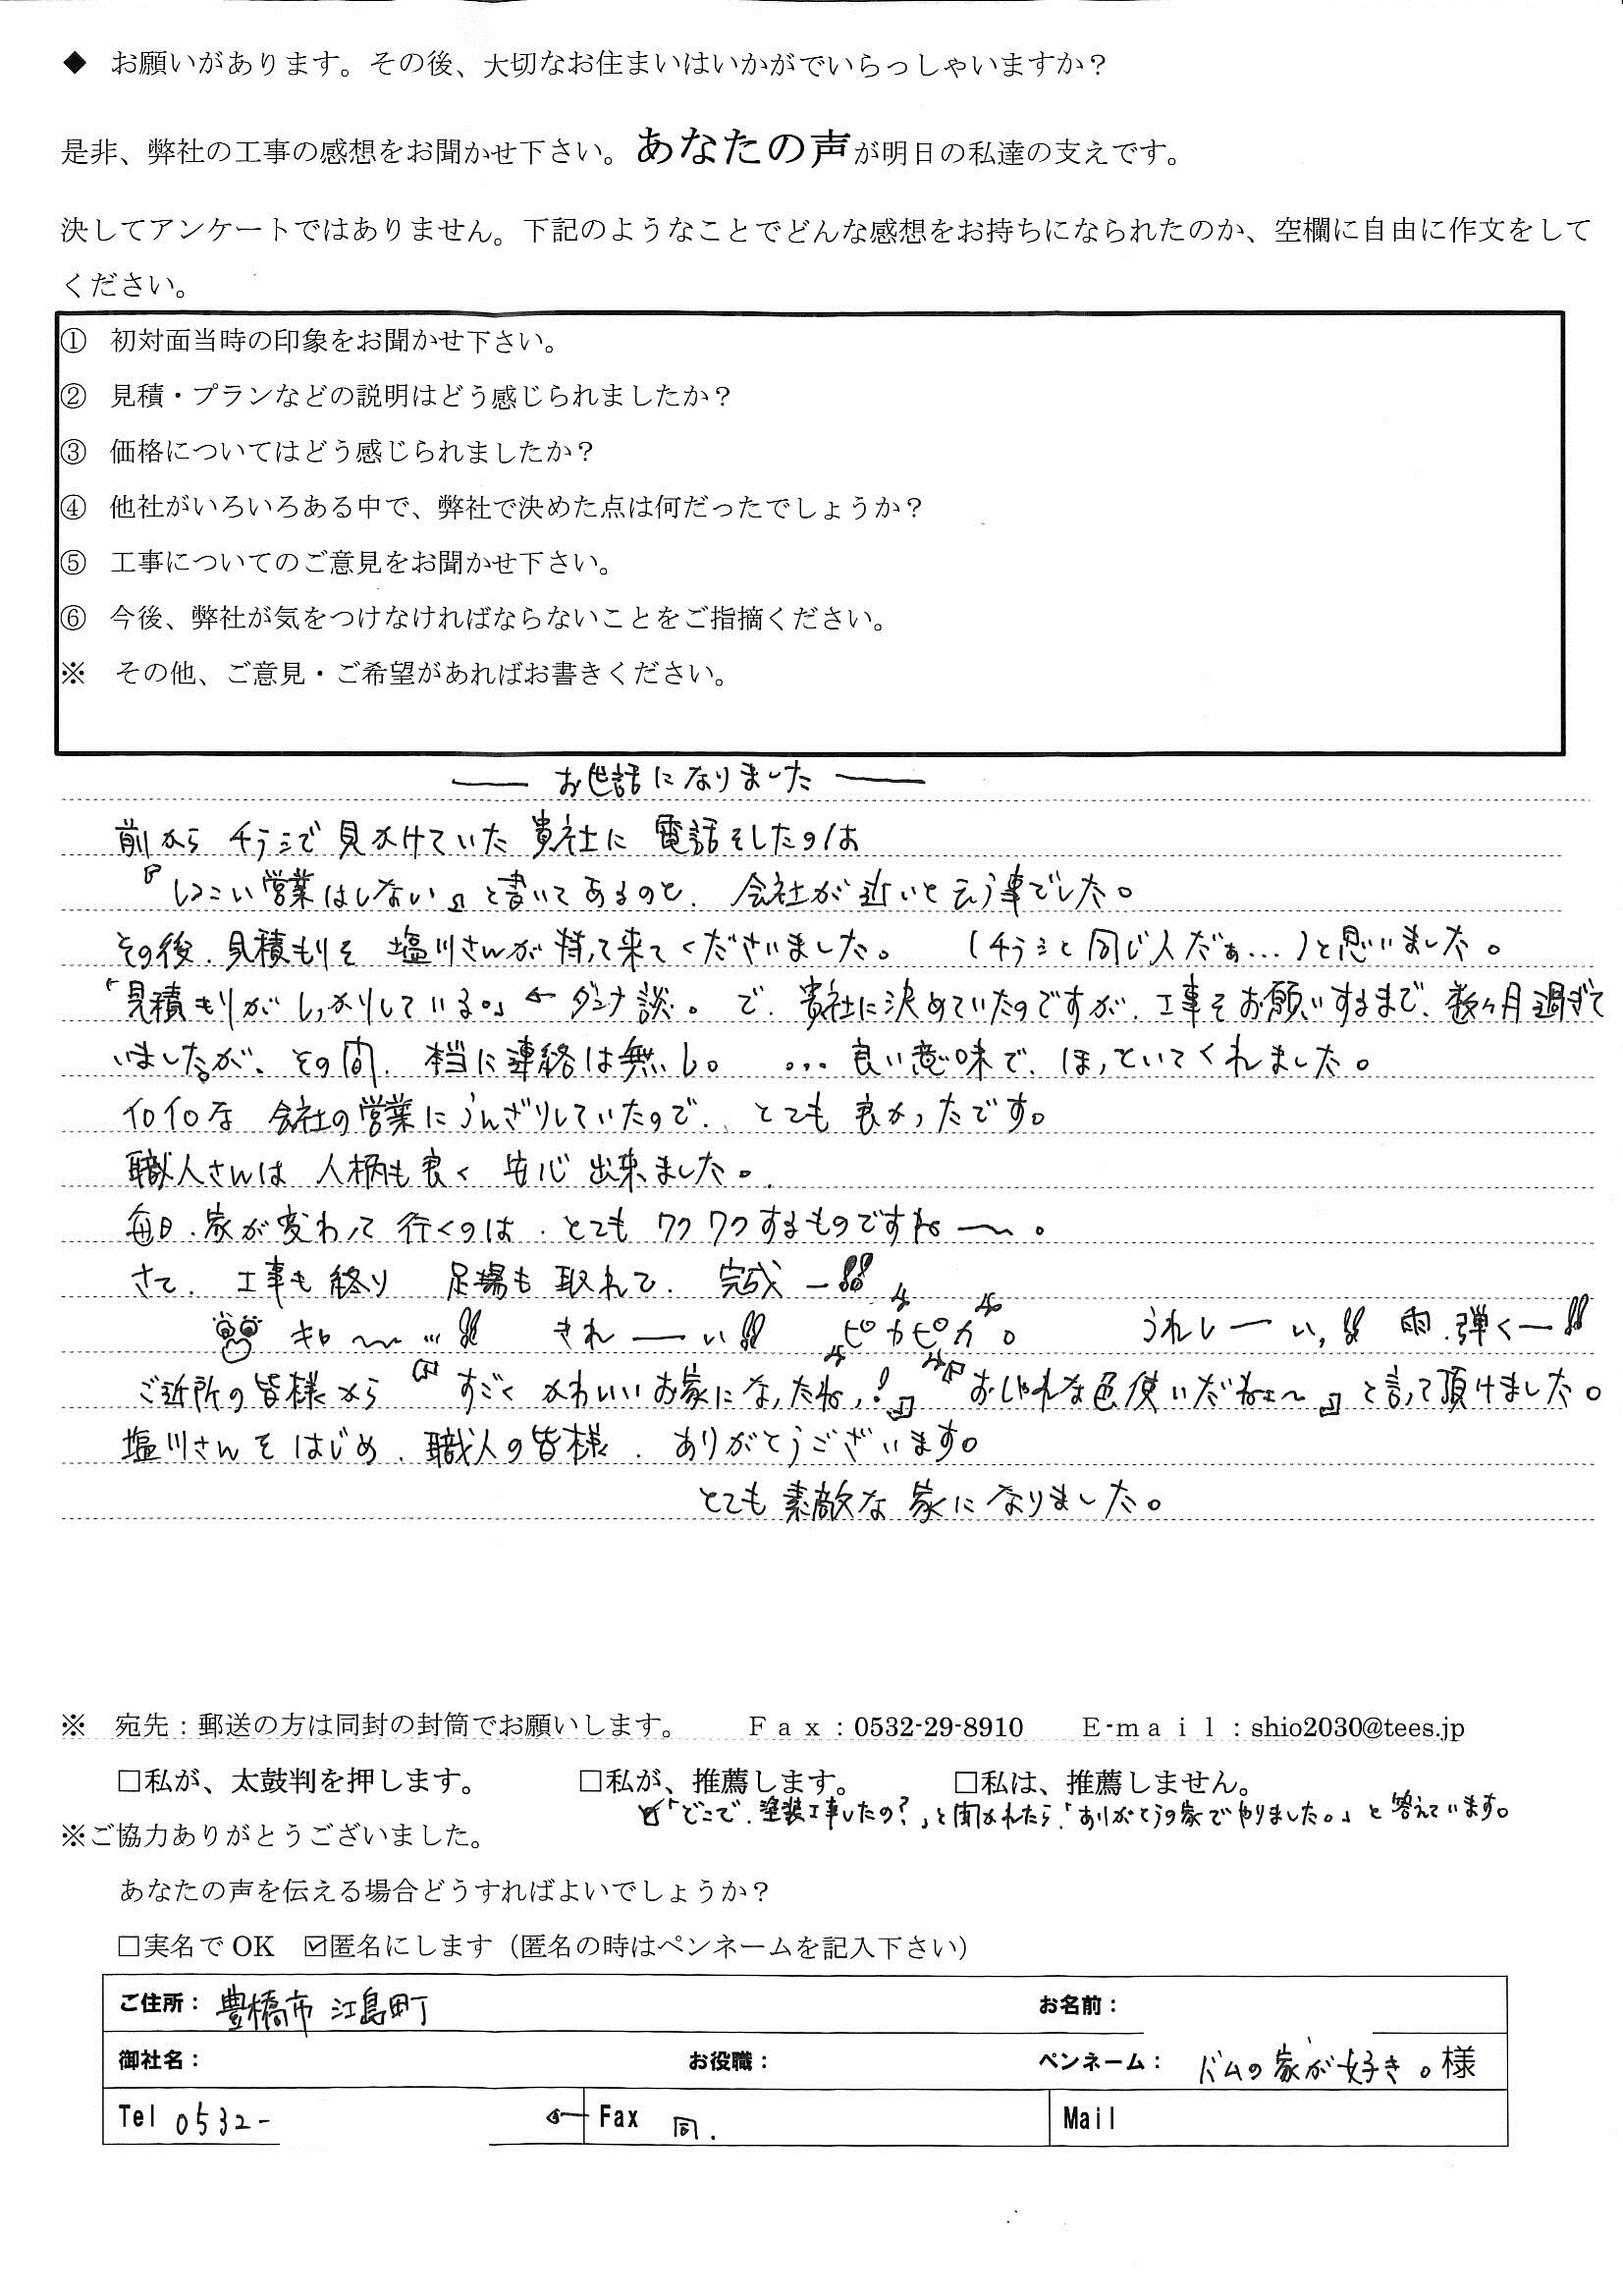 ◆ お願いがあります。その後、大切なお住まいはいかがでいらっしゃいますか？
是非、弊社の工事の感想をお聞かせ下さい。あなたの声が明日の私達の支えです。
決してアンケートではありません。下記のようなことでどんな感想をお持ちになられたのか、空欄に自由に作文をして
ください。
① 初対面当時の印象をお聞かせ下さい。
② 見積・プランなどの説明はどう感じられましたか？
③ 価格についてはどう感じられましたか？
④ 他社がいろいろある中で、弊社で決めた点は何だったでしょうか？
⑤ 工事についてのご意見をお聞かせ下さい。
⑥ 今後、弊社が気をつけなければならないことをご指摘ください。
※ その他、ご意見・ご希望があればお書きください。
―― お世話になりました ――
前から チラシで 見かけていた 貴社に 電話をしたのは
『しつこい営業はしない』と書いてあるのと、会社が近いと云う事でした。
その後、見積もりを 塩川さんが 持って来てくださいました。 (チラシと同じ人だぁ…)と思いました。
「見積もりがしっかりしている。」←ダンナ談。 で、貴社に決めていたのですが、工事をお願いするまで、数ヶ月過ぎて
いましたが、その間、本当に連絡は無し。 …良い意味で、ほっといてくれました。
イロイロな 会社の営業にうんざりしていたので、とても 良かったです。
職人さんは 人柄も良く 安心出来ました。
毎日、家が変わって行くのは、とても ワクワクするものですね〜。
さて、工事も終り 足場も取れて、完成ー!!
キャ〜…!! きれーい!! ピカピカ。 うれしーい,!! 雨、弾くー!!
ご近所の皆様から『すごく かわいいお家になったね,!』『おしゃれな色使いだねェ〜』と言って頂けました。
塩川さんをはじめ、職人の皆様、ありがとうございます。
とても素敵な 家になりました。
※ 宛先：郵送の方は同封の封筒でお願いします。 Ｆａｘ：0532-29-8910 Ｅ-ｍａｉｌ：shio2030@tees.jp
□私が、太鼓判を押します。 □私が、推薦します。 □私は、推薦しません。
☑「どこで、塗装工事したの？」と聞かれたら、「ありがとうの家でやりました。」と答えています。
※ご協力ありがとうございました。
あなたの声を伝える場合どうすればよいでしょうか？
□実名で OK ☑匿名にします（匿名の時はペンネームを記入下さい）
ご住所： 豊橋市 江島町 お名前：
御社名： お役職： ペンネーム： バムの家が好き。様
Tel 0532- ← Fax 同. Mail